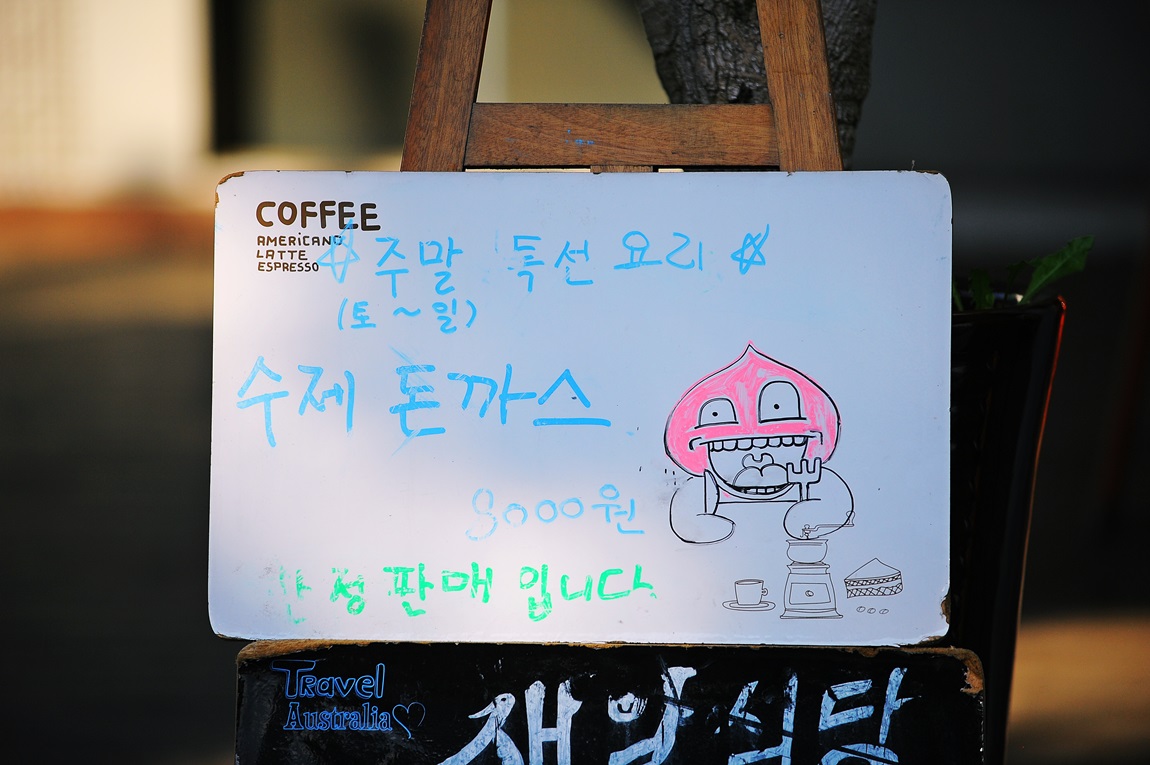 COFFEE
AMERICANO
LATTE
ESPRESSO
☆주말 특선 요리☆
(토~일)
수제 돈까스
8000원
한정판매 입니다
Travel
Australia♡